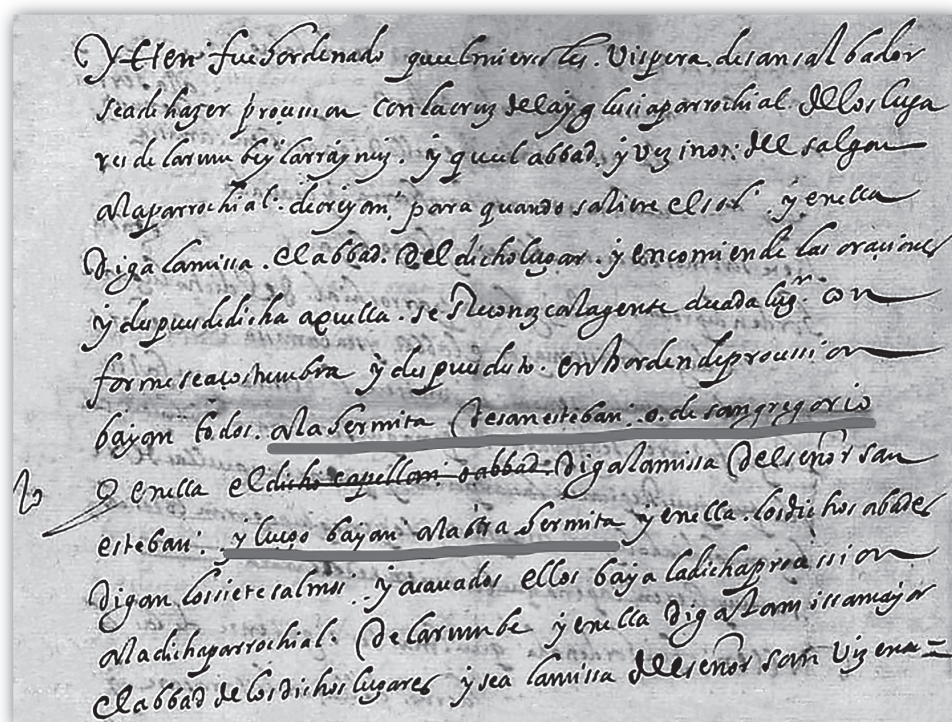 Yten fue hordenado que el miercoles. vispera. de san salbador
se a de hazer procession con la cruz de la yglesia parrochial. de los luga
res de larumbe y larraynziz. y que el abbad. y vezinos. del salgan
a la parrochial. de oriyon, para quando saliere el sol. y en ella
diga la missa. el abbad. del dicho lugar. y encomiende las oraciones
y despues de dicha aquella. se Reconozca la gente de cada lugr. con
forme se acostumbra y despues desto. en horden de procession
bajan todos. a la hermita de san esteban. o. de san gregorio
Q en ella el dicho capellan. o abbad. diga la missa del señor san
esteban. y luego bajan a la otra hermita y en ella. los dichos abades
digan los siete salmos y acauados ellos baja la dicha procession
a la dicha parrochial. de larumbe y en ella diga la missa mayor
el abbad de los dichos lugares y sea la missa del señor san vizen=